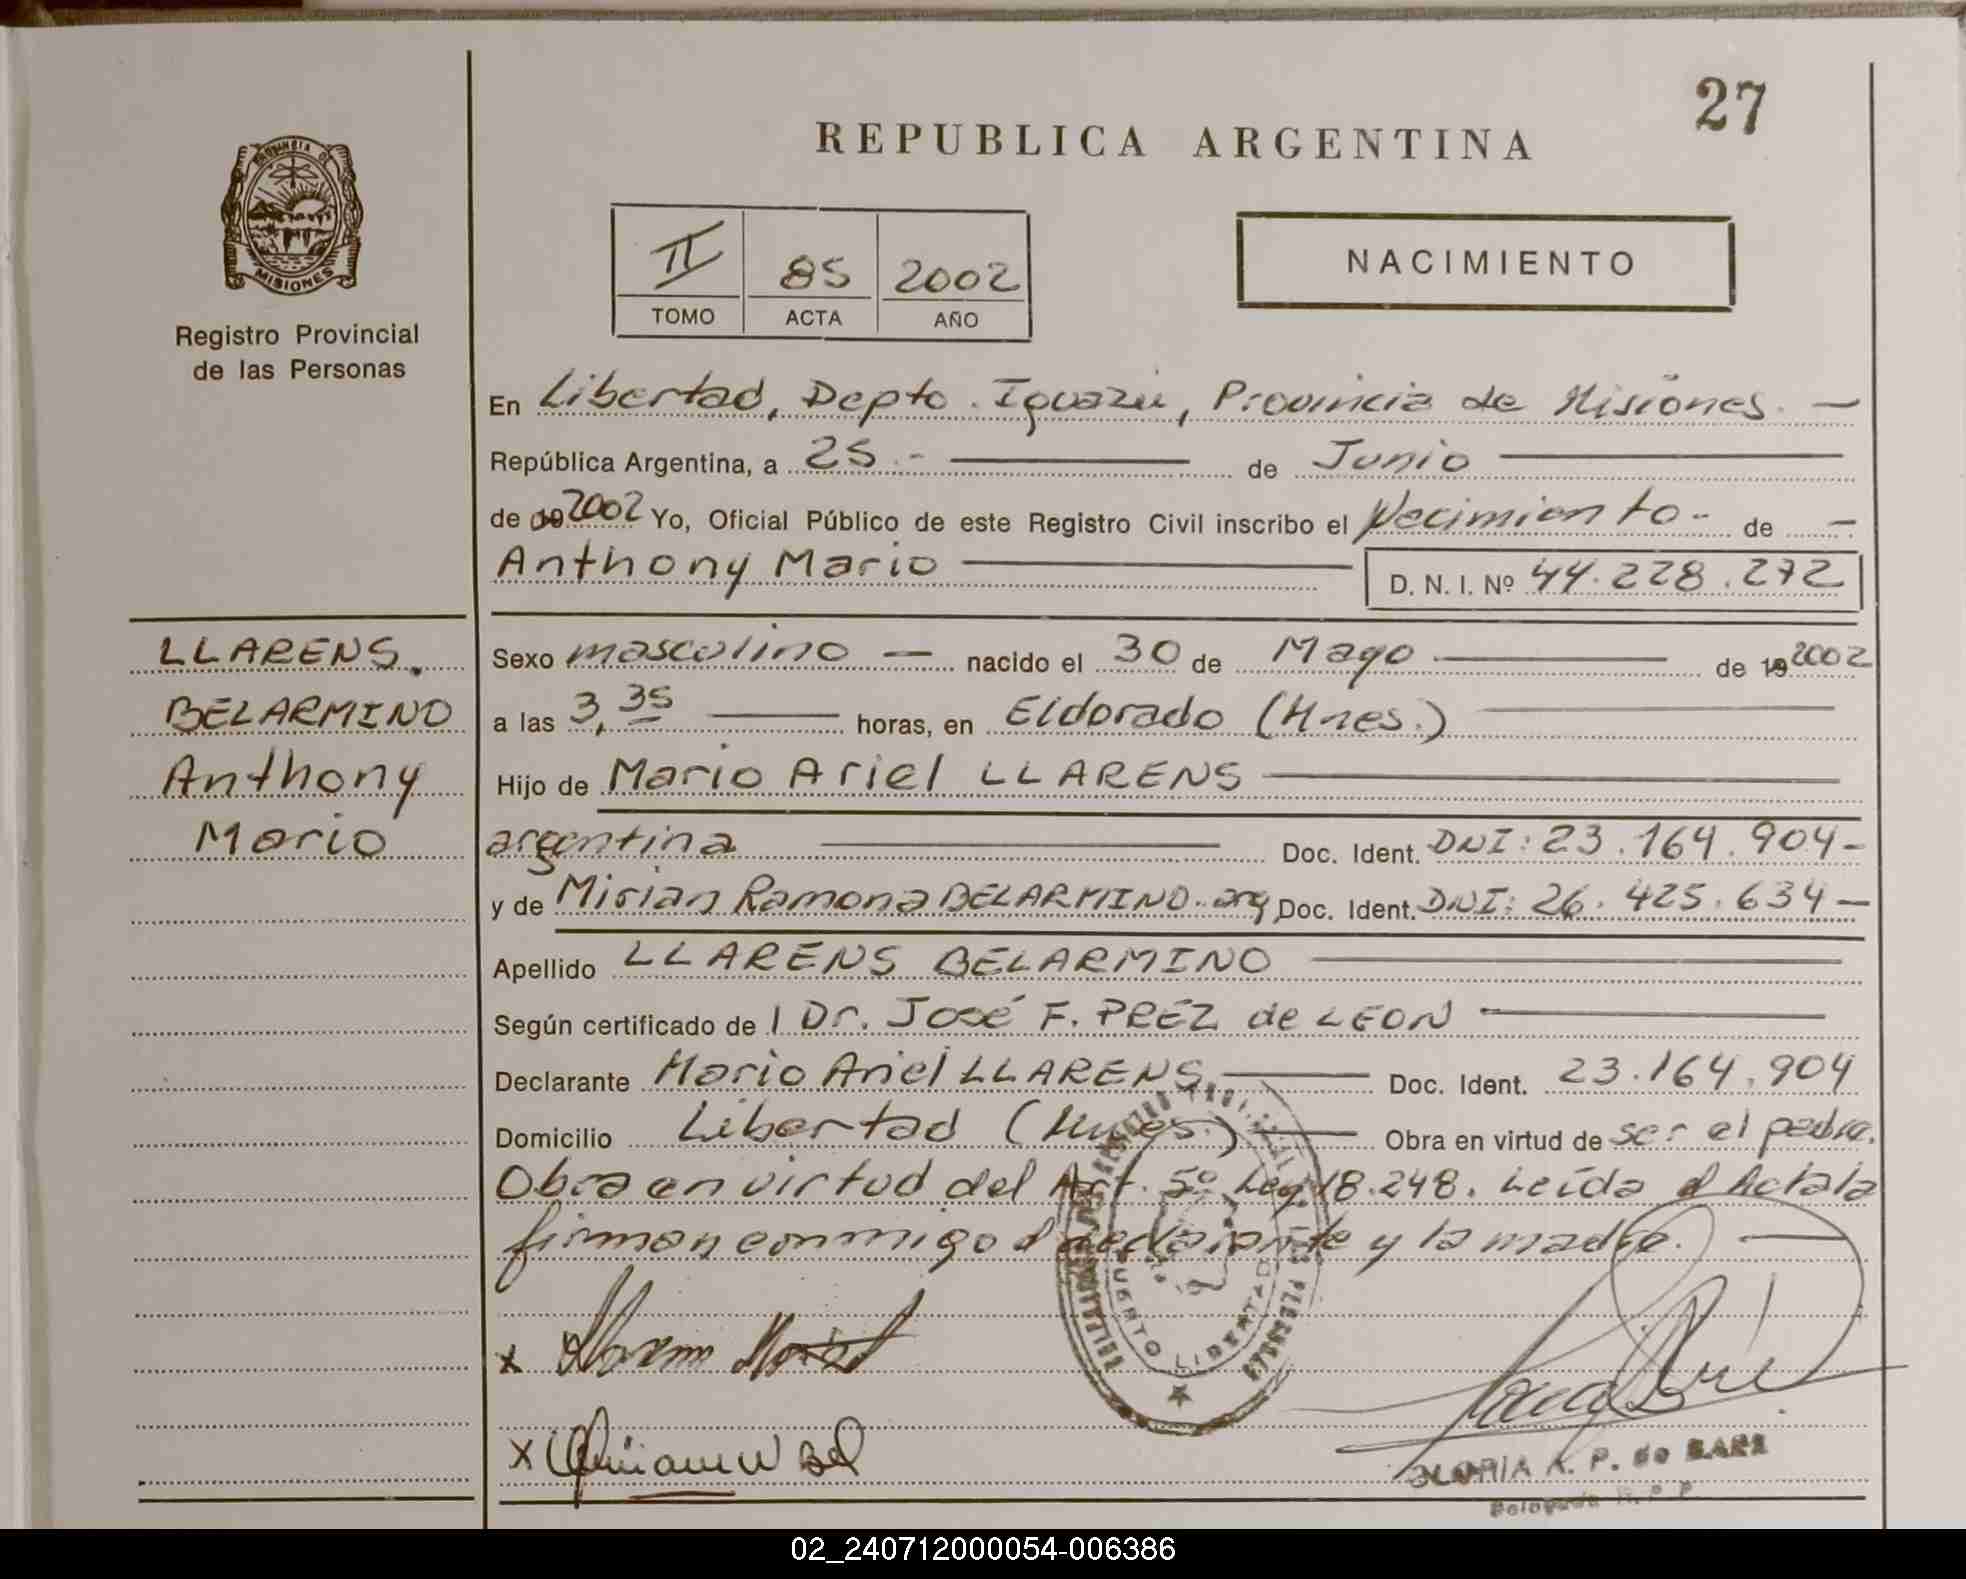 27
REPUBLICA ARGENTINA
PROVINCIA DE
MISIONES
Registro Provincial
de las Personas
II 85 2002
TOMO ACTA AÑO
NACIMIENTO
En Libertad, Depto. Iguazú, Provincia de Misiones. —
República Argentina, a 25.- de Junio
de 19 2002 Yo, Oficial Público de este Registro Civil inscribo el Nacimiento.- de —
Anthony Mario
D. N. I. Nº 44.228.272
LLARENS.
BELARMINO
Anthony
Mario
Sexo masculino — nacido el 30 de Mayo de 19 2002
a las 3,35 horas, en Eldorado (Mnes.)
Hijo de Mario Ariel LLARENS
argentina Doc. Ident. DNI: 23.164.904-
y de Mirian Ramona BELARMINO. arg. Doc. Ident. DNI: 26.425.634 —
Apellido LLARENS BELARMINO
Según certificado de l Dr. José F. PREZ de LEON
Declarante Mario Ariel LLARENS. Doc. Ident. 23.164.904
Domicilio Libertad (Mnes.) Obra en virtud de ser el padre.
Obra en virtud del Art. 5º Ley 18.248. Leída el Acta la
firman conmigo el declarante y la madre. —
PUERTO LIBERTAD
x
x
GLORIA K. P. de
Delegada R. P. P.
02_240712000054-006386